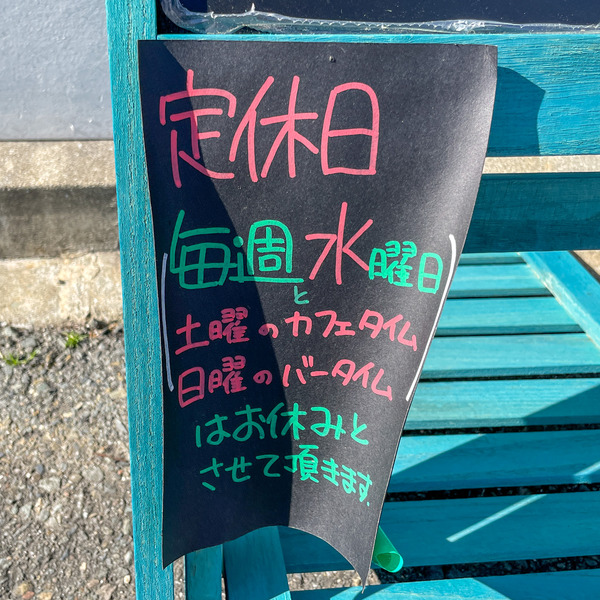 定休日
毎週水曜日
と
土曜のカフェタイム
日曜のバータイム
はお休みと
させて頂きます.